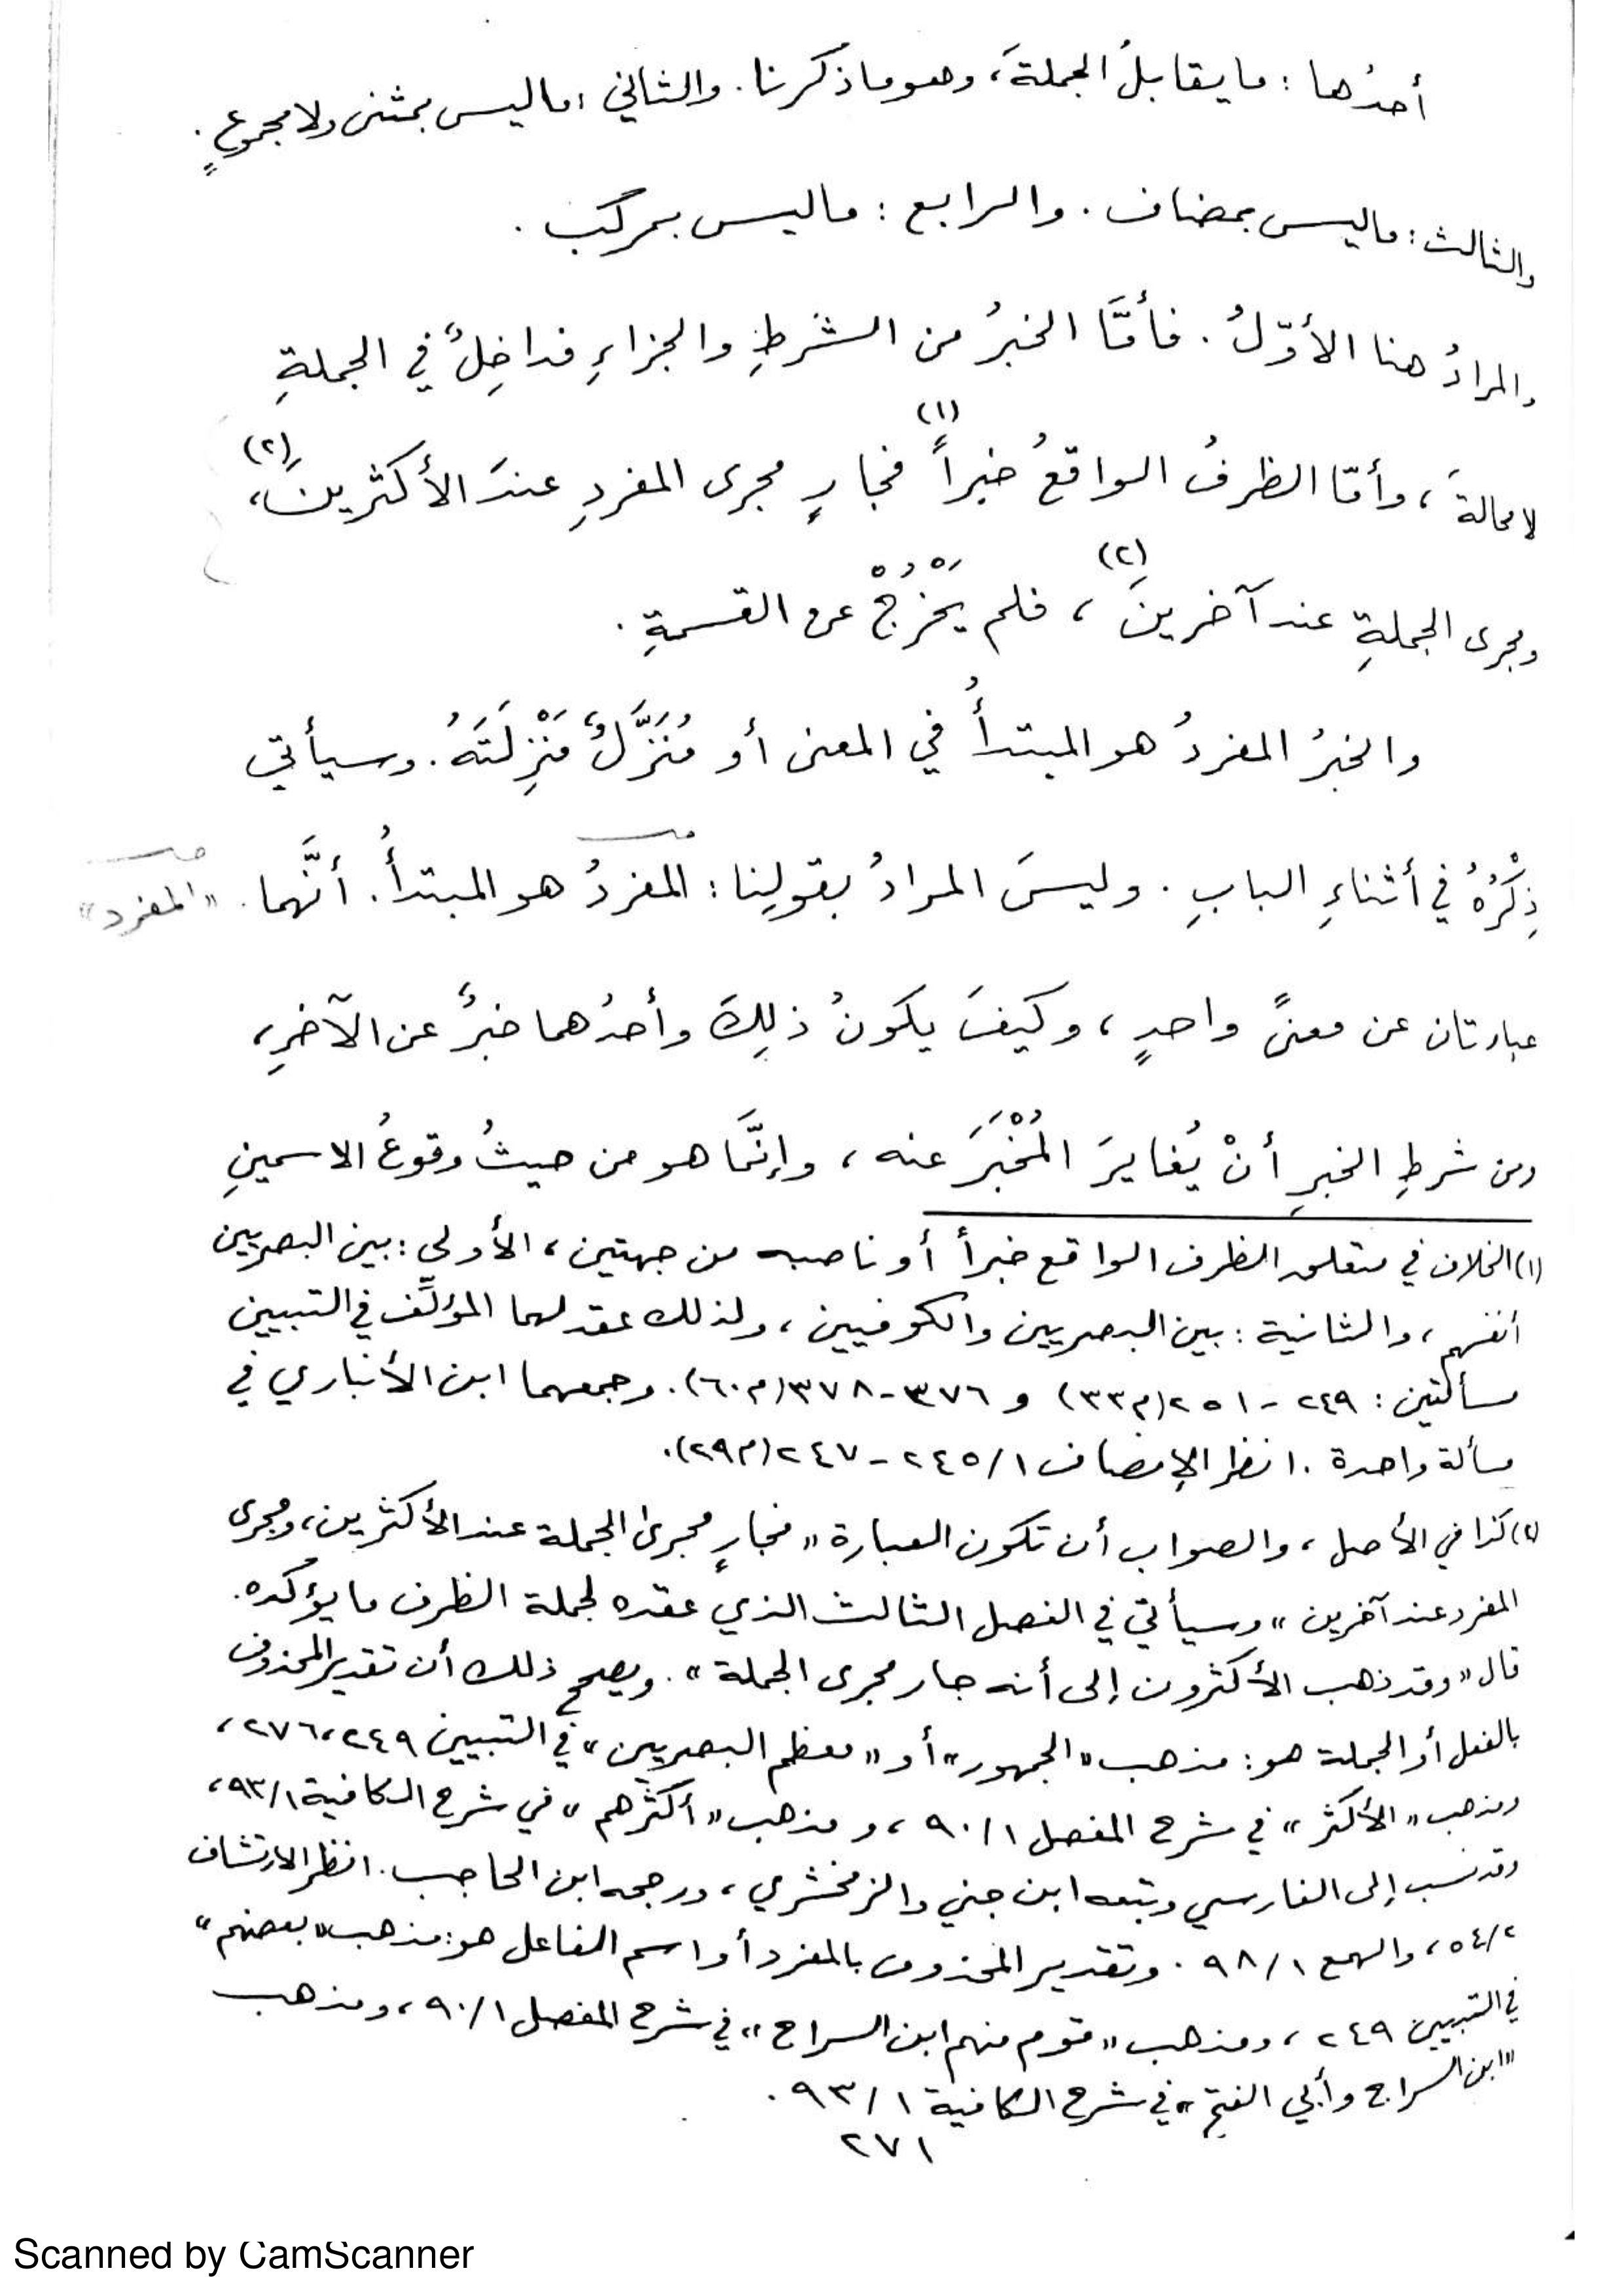 أحدُها : ما يقابلُ الجملةَ، وهو ما ذكرنا. والثاني : ما ليس بمثنى ولا مجموعٍ.
والثالث : ما ليس بمضاف . والرابع : ما ليس بمركّب .
والمرادُ هنا الأوّلُ . فأمَّا الخبرُ من الشَّرطِ والجزاءِ فداخِلٌ في الجملةِ
لا محالةَ ، وأمّا الظرفُ الواقعُ خبراً(١) فجارٍ مجرى المفردِ عندَ الأكثرينَ(٢)،
ومجرى الجملةِ عند آخرينَ(٢) ، فلم يَخْرُجْ عن القسمةِ .
والخبرُ المفردُ هو المبتدأُ في المعنى أو مُنَزَّلٌ مَنْزِلَتَهُ . وسيأتي
ذِكْرُهُ في أثناءِ البابِ . وليسَ المرادُ بقولِنا : المفردُ هو المبتدأُ. أنَّهما . «المفرد»
عبارتان عن معنىً واحدٍ ، وكيفَ يكونُ ذلِكَ وأحدُهما خبرٌ عن الآخرِ ،
ومن شرطِ الخبرِ أنْ يُغايرَ المُخْبَرَ عنه ، وإنَّما هو من حيثُ وقوعُ الاسمينِ
(١) الخلاف في متعلق الظرف الواقع خبراً أو ناصبه من جهتين ، الأولى : بين البصريين
أنفسهم ، والثانية : بين البصريين والكوفيين ، ولذلك عقد لهما المؤلِّف في التبيين
مسألتين : ٢٤٩ - ٢٥١ (م ٣٣) و ٣٧٦ - ٣٧٨ (م ٦٠). وجمعهما ابن الأنباري في
مسألة واحدة . انظر الإنصاف ١/ ٢٤٥ - ٢٤٧ (م ٢٩).
(٢) كذا في الأصل ، والصواب أن تكون العبارة « فجارٍ مجرى الجملة عند الأكثرين ، ومجرى
المفرد عند آخرين » وسيأتي في الفصل الثالث الذي عقده لجملة الظرف ما يؤكده .
قال « وقد ذهب الأكثرون إلى أنه جار مجرى الجملة » . ويصحح ذلك أن تقدير المحذوف
بالفعل أو الجملة هو : مذهب « الجمهور » أو « معظم البصريين » في التبيين ٢٤٩ ، ٢٧٦ ،
ومذهب « الأكثر » في شرح المفصل ١/ ٩٠ ، ومذهب « أكثرهم » في شرح الكافية ١/ ٩٣ ،
وقد نسب إلى الفارسي وتبعه ابن جني والزمخشري ، ورجحه ابن الحاجب . انظر الارتشاف
٢/ ٥٤ ، والهمع ١/ ٩٨ . وتقدير المحذوف بالمفرد أو اسم الفاعل هو : مذهب « بعضهم »
في التبيين ٢٤٩ ، ومذهب « قوم منهم ابن السراج » في شرح المفصل ١/ ٩٠ ، ومذهب
« ابن السراج وأبي الفتح » في شرح الكافية ١/ ٩٣ .
٢٧١
Scanned by CamScanner